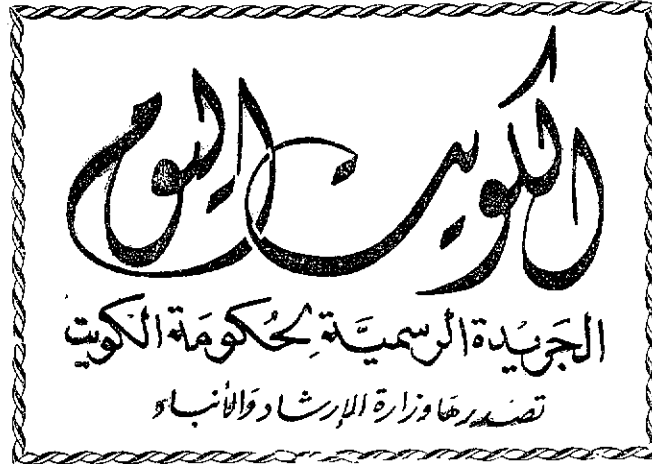 الكويت اليوم
الجَريدة الرسميَّة لِحُكومَة الكويت
تصدرها وزارة الإرشاد وَالأنباء